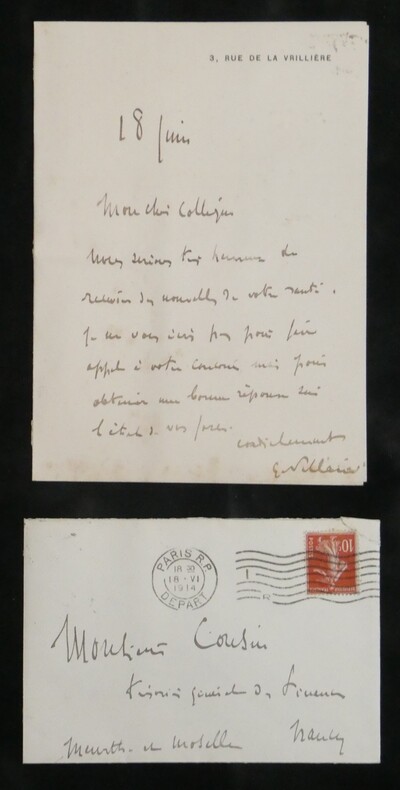 3, RUE DE LA VRILLIÈRE
18 juin
Mon cher Collègue
Nous serions très heureux de
recevoir des nouvelles de votre santé.
Je ne vous écris pas pour faire
appel à votre concours mais pour
obtenir une bonne réponse sur
l'état de vos forces.
cordialement
PARIS R.P.
18 30
18 · VI
1914
DEPART
10
Monsieur Cousin
Trésorier général des Finances
Nancy
Meurthe et Moselle